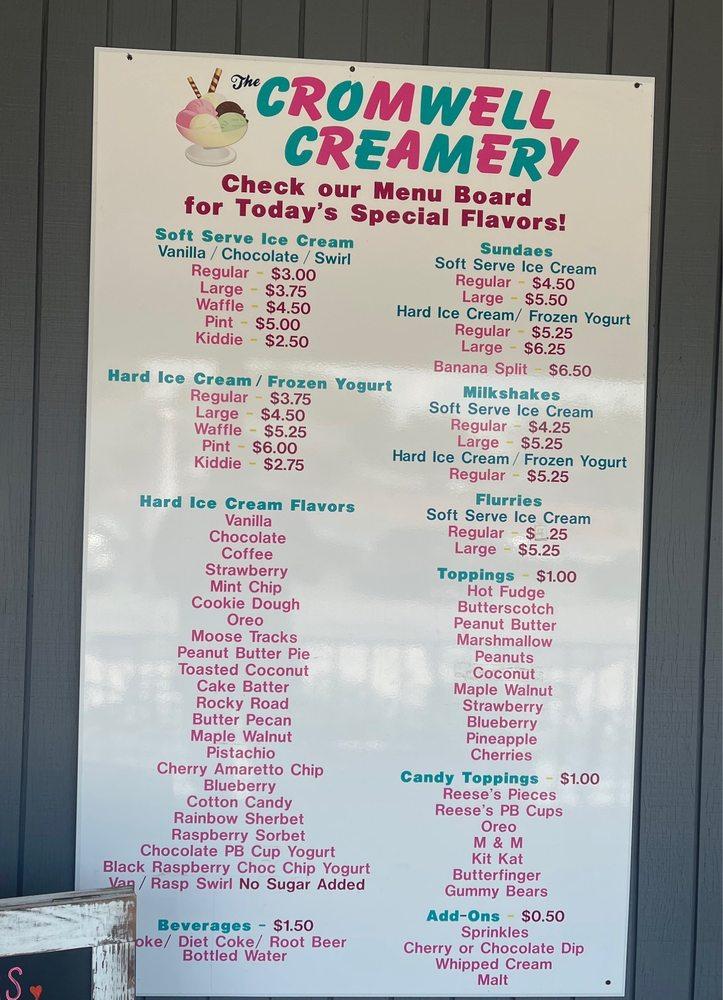 The CROMWELL
CREAMERY
Check our Menu Board
for Today's Special Flavors!
Soft Serve Ice Cream
Vanilla / Chocolate / Swirl
Regular - $3.00
Large - $3.75
Waffle - $4.50
Pint - $5.00
Kiddie - $2.50
Hard Ice Cream / Frozen Yogurt
Regular - $3.75
Large - $4.50
Waffle - $5.25
Pint - $6.00
Kiddie - $2.75
Hard Ice Cream Flavors
Vanilla
Chocolate
Coffee
Strawberry
Mint Chip
Cookie Dough
Oreo
Moose Tracks
Peanut Butter Pie
Toasted Coconut
Cake Batter
Rocky Road
Butter Pecan
Maple Walnut
Pistachio
Cherry Amaretto Chip
Blueberry
Cotton Candy
Rainbow Sherbet
Raspberry Sorbet
Chocolate PB Cup Yogurt
Black Raspberry Choc Chip Yogurt
Van / Rasp Swirl No Sugar Added
Beverages - $1.50
oke/ Diet Coke/ Root Beer
Bottled Water
Sundaes
Soft Serve Ice Cream
Regular - $4.50
Large - $5.50
Hard Ice Cream/ Frozen Yogurt
Regular - $5.25
Large - $6.25
Banana Split - $6.50
Milkshakes
Soft Serve Ice Cream
Regular - $4.25
Large - $5.25
Hard Ice Cream / Frozen Yogurt
Regular - $5.25
Flurries
Soft Serve Ice Cream
Regular - $ .25
Large - $5.25
Toppings - $1.00
Hot Fudge
Butterscotch
Peanut Butter
Marshmallow
Peanuts
Coconut
Maple Walnut
Strawberry
Blueberry
Pineapple
Cherries
Candy Toppings - $1.00
Reese's Pieces
Reese's PB Cups
Oreo
M & M
Kit Kat
Butterfinger
Gummy Bears
Add-Ons - $0.50
Sprinkles
Cherry or Chocolate Dip
Whipped Cream
Malt
S